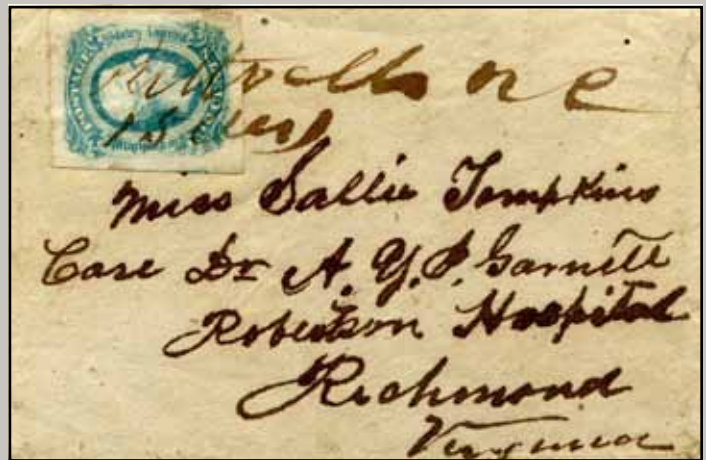 POSTAGE
n c
15
Miss Sallie Tompkins
Care Dr A. Y. P. Garnett
Robertson Hospital
Richmond
Virginia